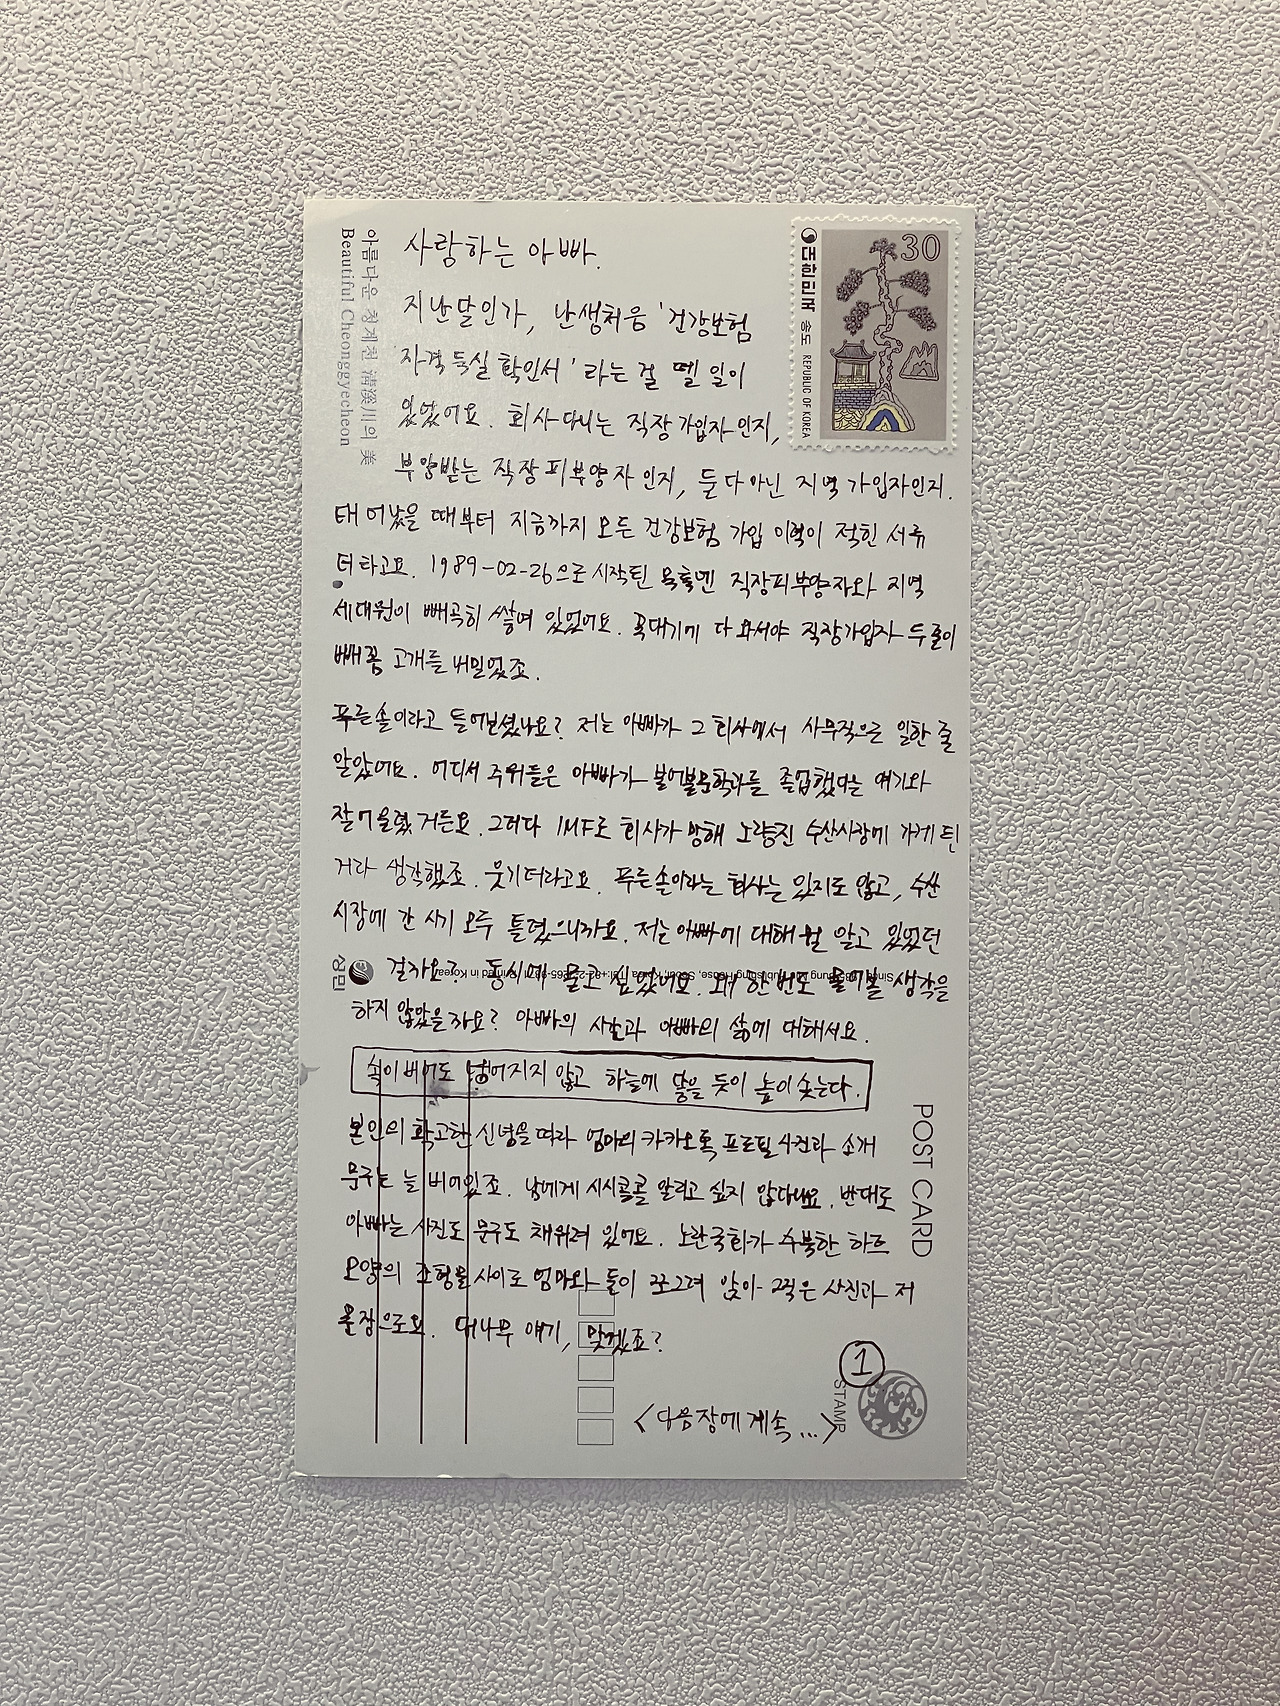 사랑하는 아빠.
지난달인가, 난생처음 '건강보험
자격득실 확인서'라는 걸 뗄 일이
있었어요. 회사다니는 직장가입자인지,
부양받는 직장피부양자인지, 둘 다 아닌 지역가입자인지.
태어났을 때부터 지금까지 모든 건강보험 가입 이력이 적힌 서류
더라고요. 1989-02-26으로 시작된 목록엔 직장피부양자와 지역
세대원이 빼곡히 쌓여 있었어요. 꼭대기에 다 와서야 직장가입자 두 줄이
빼꼼 고개를 내밀었죠.
푸른솔이라고 들어보셨나요? 저는 아빠가 그 회사에서 사무직으로 일한 줄
알았어요. 어디서 주워들은 아빠가 불어불문학과를 졸업했다는 얘기와
잘 어울렸거든요. 그러다 IMF로 회사가 망해 노량진 수산시장에 가게 된
거라 생각했죠. 웃기더라고요. 푸른솔이라는 회사는 있지도 않고, 수산
시장에 간 시기 모두 틀렸으니까요. 저는 아빠에 대해 뭘 알고 있었던
걸까요? 동시에 묻고 싶었어요. 왜 한 번도 물어볼 생각을
하지 않았을까요? 아빠의 사랑과 아빠의 삶에 대해서요.
속이 비어도 넘어지지 않고 하늘에 닿을 듯이 높이 솟는다.
본인의 확고한 신념을 따라 엄마의 카카오톡 프로필 사진과 소개
문구는 늘 비어있죠. 남에게 시시콜콜 알리고 싶지 않다나요. 반대로
아빠는 사진도 문구도 채워져 있어요. 노란국화가 수북한 하트
모양의 조형물 사이로 엄마와 둘이 쪼그려 앉아 찍은 사진과 저
문장으로요. 대나무 얘기, 맞겠죠?
<다음장에 계속...>
1
30
대한민국 송도 REPUBLIC OF KOREA
아름다운 청계천 清溪川의 美
Beautiful Cheonggyecheon
성민
Publishing House, Seoul, Korea
Printed in Korea
POST CARD
STAMP